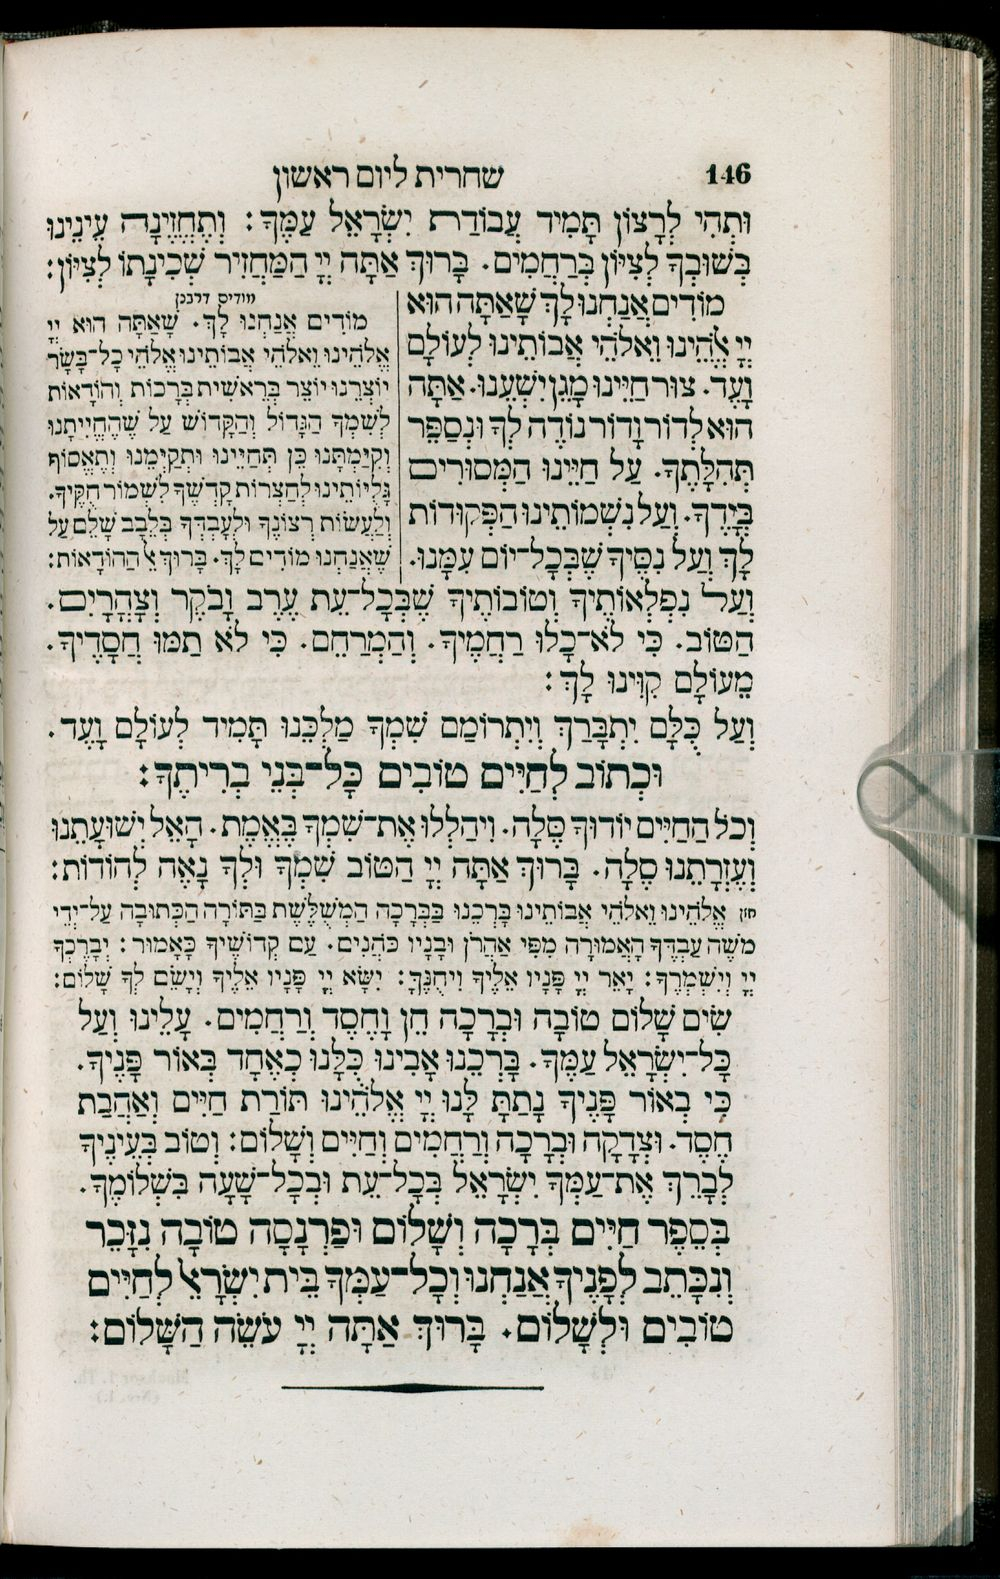 146 שחרית ליום ראשון
וּתְהִי לְרָצוֹן תָּמִיד עֲבוֹדַת יִשְׂרָאֵל עַמֶּךָ: וְתֶחֱזֶינָה עֵינֵינוּ
בְּשׁוּבְךָ לְצִיּוֹן בְּרַחֲמִים. בָּרוּךְ אַתָּה יְיָ הַמַּחֲזִיר שְׁכִינָתוֹ לְצִיּוֹן:
מוֹדִים אֲנַחְנוּ לָךְ שָׁאַתָּה הוּא
יְיָ אֱלֹהֵינוּ וֵאלֹהֵי אֲבוֹתֵינוּ לְעוֹלָם
וָעֶד. צוּר חַיֵּינוּ מָגֵן יִשְׁעֵנוּ. אַתָּה
הוּא לְדוֹר וָדוֹר נוֹדֶה לְּךָ וּנְסַפֵּר
תְּהִלָּתֶךָ. עַל חַיֵּינוּ הַמְּסוּרִים
בְּיָדֶךָ. וְעַל נִשְׁמוֹתֵינוּ הַפְּקוּדוֹת
לָךְ וְעַל נִסֶּיךָ שֶׁבְּכָל־יוֹם עִמָּנוּ.
מודים דרבנן
מוֹדִים אֲנַחְנוּ לָךְ. שָׁאַתָּה הוּא יְיָ
אֱלֹהֵינוּ וֵאלֹהֵי אֲבוֹתֵינוּ אֱלֹהֵי כָל־בָּשָׂר
יוֹצְרֵנוּ יוֹצֵר בְּרֵאשִׁית בְּרָכוֹת וְהוֹדָאוֹת
לְשִׁמְךָ הַגָּדוֹל וְהַקָּדוֹשׁ עַל שֶׁהֶחֱיִיתָנוּ
וְקִיַּמְתָּנוּ כֵּן תְּחַיֵּינוּ וּתְקַיְּמֵנוּ וְתֶאֱסוֹף
גָּלֻיּוֹתֵינוּ לְחַצְרוֹת קָדְשֶׁךָ לִשְׁמוֹר חֻקֶּיךָ.
וְלַעֲשׂוֹת רְצוֹנֶךָ וּלְעָבְדְּךָ בְּלֵבָב שָׁלֵם עַל
שֶׁאֲנַחְנוּ מוֹדִים לָךְ. בָּרוּךְ אֵל הַהוֹדָאוֹת:
וְעַל נִפְלְאוֹתֶיךָ וְטוֹבוֹתֶיךָ שֶׁבְּכָל־עֵת עֶרֶב וָבֹקֶר וְצָהֳרָיִם.
הַטּוֹב. כִּי לֹא־כָלוּ רַחֲמֶיךָ. וְהַמְרַחֵם. כִּי לֹא תַמּוּ חֲסָדֶיךָ.
מֵעוֹלָם קִוִּינוּ לָךְ:
וְעַל כֻּלָּם יִתְבָּרַךְ וְיִתְרוֹמַם שִׁמְךָ מַלְכֵּנוּ תָּמִיד לְעוֹלָם וָעֶד.
וּכְתוֹב לְחַיִּים טוֹבִים כָּל־בְּנֵי בְרִיתֶךָ:
וְכֹל הַחַיִּים יוֹדוּךָ סֶּלָה. וִיהַלְלוּ אֶת־שִׁמְךָ בֶּאֱמֶת. הָאֵל יְשׁוּעָתֵנוּ
וְעֶזְרָתֵנוּ סֶלָה. בָּרוּךְ אַתָּה יְיָ הַטּוֹב שִׁמְךָ וּלְךָ נָאֶה לְהוֹדוֹת:
חזן אֱלֹהֵינוּ וֵאלֹהֵי אֲבוֹתֵינוּ בָּרְכֵנוּ בַּבְּרָכָה הַמְשֻׁלֶּשֶׁת בַּתּוֹרָה הַכְּתוּבָה עַל־יְדֵי
משֶׁה עַבְדֶּךָ הָאֲמוּרָה מִפִּי אַהֲרֹן וּבָנָיו כֹּהֲנִים. עַם קְדוֹשֶׁיךָ כָּאָמוּר: יְבָרֶכְךָ
יְיָ וְיִשְׁמְרֶךָ: יָאֵר יְיָ פָּנָיו אֵלֶיךָ וִיחֻנֶּךָּ: יִשָּׂא יְיָ פָּנָיו אֵלֶיךָ וְיָשֵׂם לְךָ שָׁלוֹם:
שִׂים שָׁלוֹם טוֹבָה וּבְרָכָה חֵן וָחֶסֶד וְרַחֲמִים. עָלֵינוּ וְעַל
כָּל־יִשְׂרָאֵל עַמֶּךָ. בָּרְכֵנוּ אָבִינוּ כֻּלָּנוּ כְּאֶחָד בְּאוֹר פָּנֶיךָ.
כִּי בְאוֹר פָּנֶיךָ נָתַתָּ לָּנוּ יְיָ אֱלֹהֵינוּ תּוֹרַת חַיִּים וְאַהֲבַת
חֶסֶד. וּצְדָקָה וּבְרָכָה וְרַחֲמִים וְחַיִּים וְשָׁלוֹם: וְטוֹב בְּעֵינֶיךָ
לְבָרֵךְ אֶת־עַמְּךָ יִשְׂרָאֵל בְּכָל־עֵת וּבְכָל־שָׁעָה בִּשְׁלוֹמֶךָ.
בְּסֵפֶר חַיִּים בְּרָכָה וְשָׁלוֹם וּפַרְנָסָה טוֹבָה נִזָּכֵר
וְנִכָּתֵב לְפָנֶיךָ אֲנַחְנוּ וְכָל־עַמְּךָ בֵּית יִשְׂרָאֵל לְחַיִּים
טוֹבִים וּלְשָׁלוֹם. בָּרוּךְ אַתָּה יְיָ עֹשֵׂה הַשָּׁלוֹם: